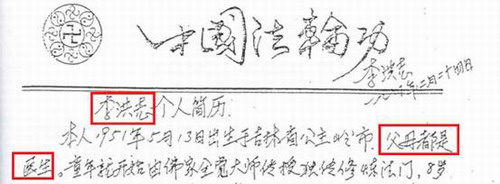 中國法輪功
李洪志
二月二十四日
李洪志个人简历.
本人1951年5月13日出生于吉林省公主岭市. 父母都是
医生。童年就开始由佛家全觉大师传授独传修炼法门,8岁